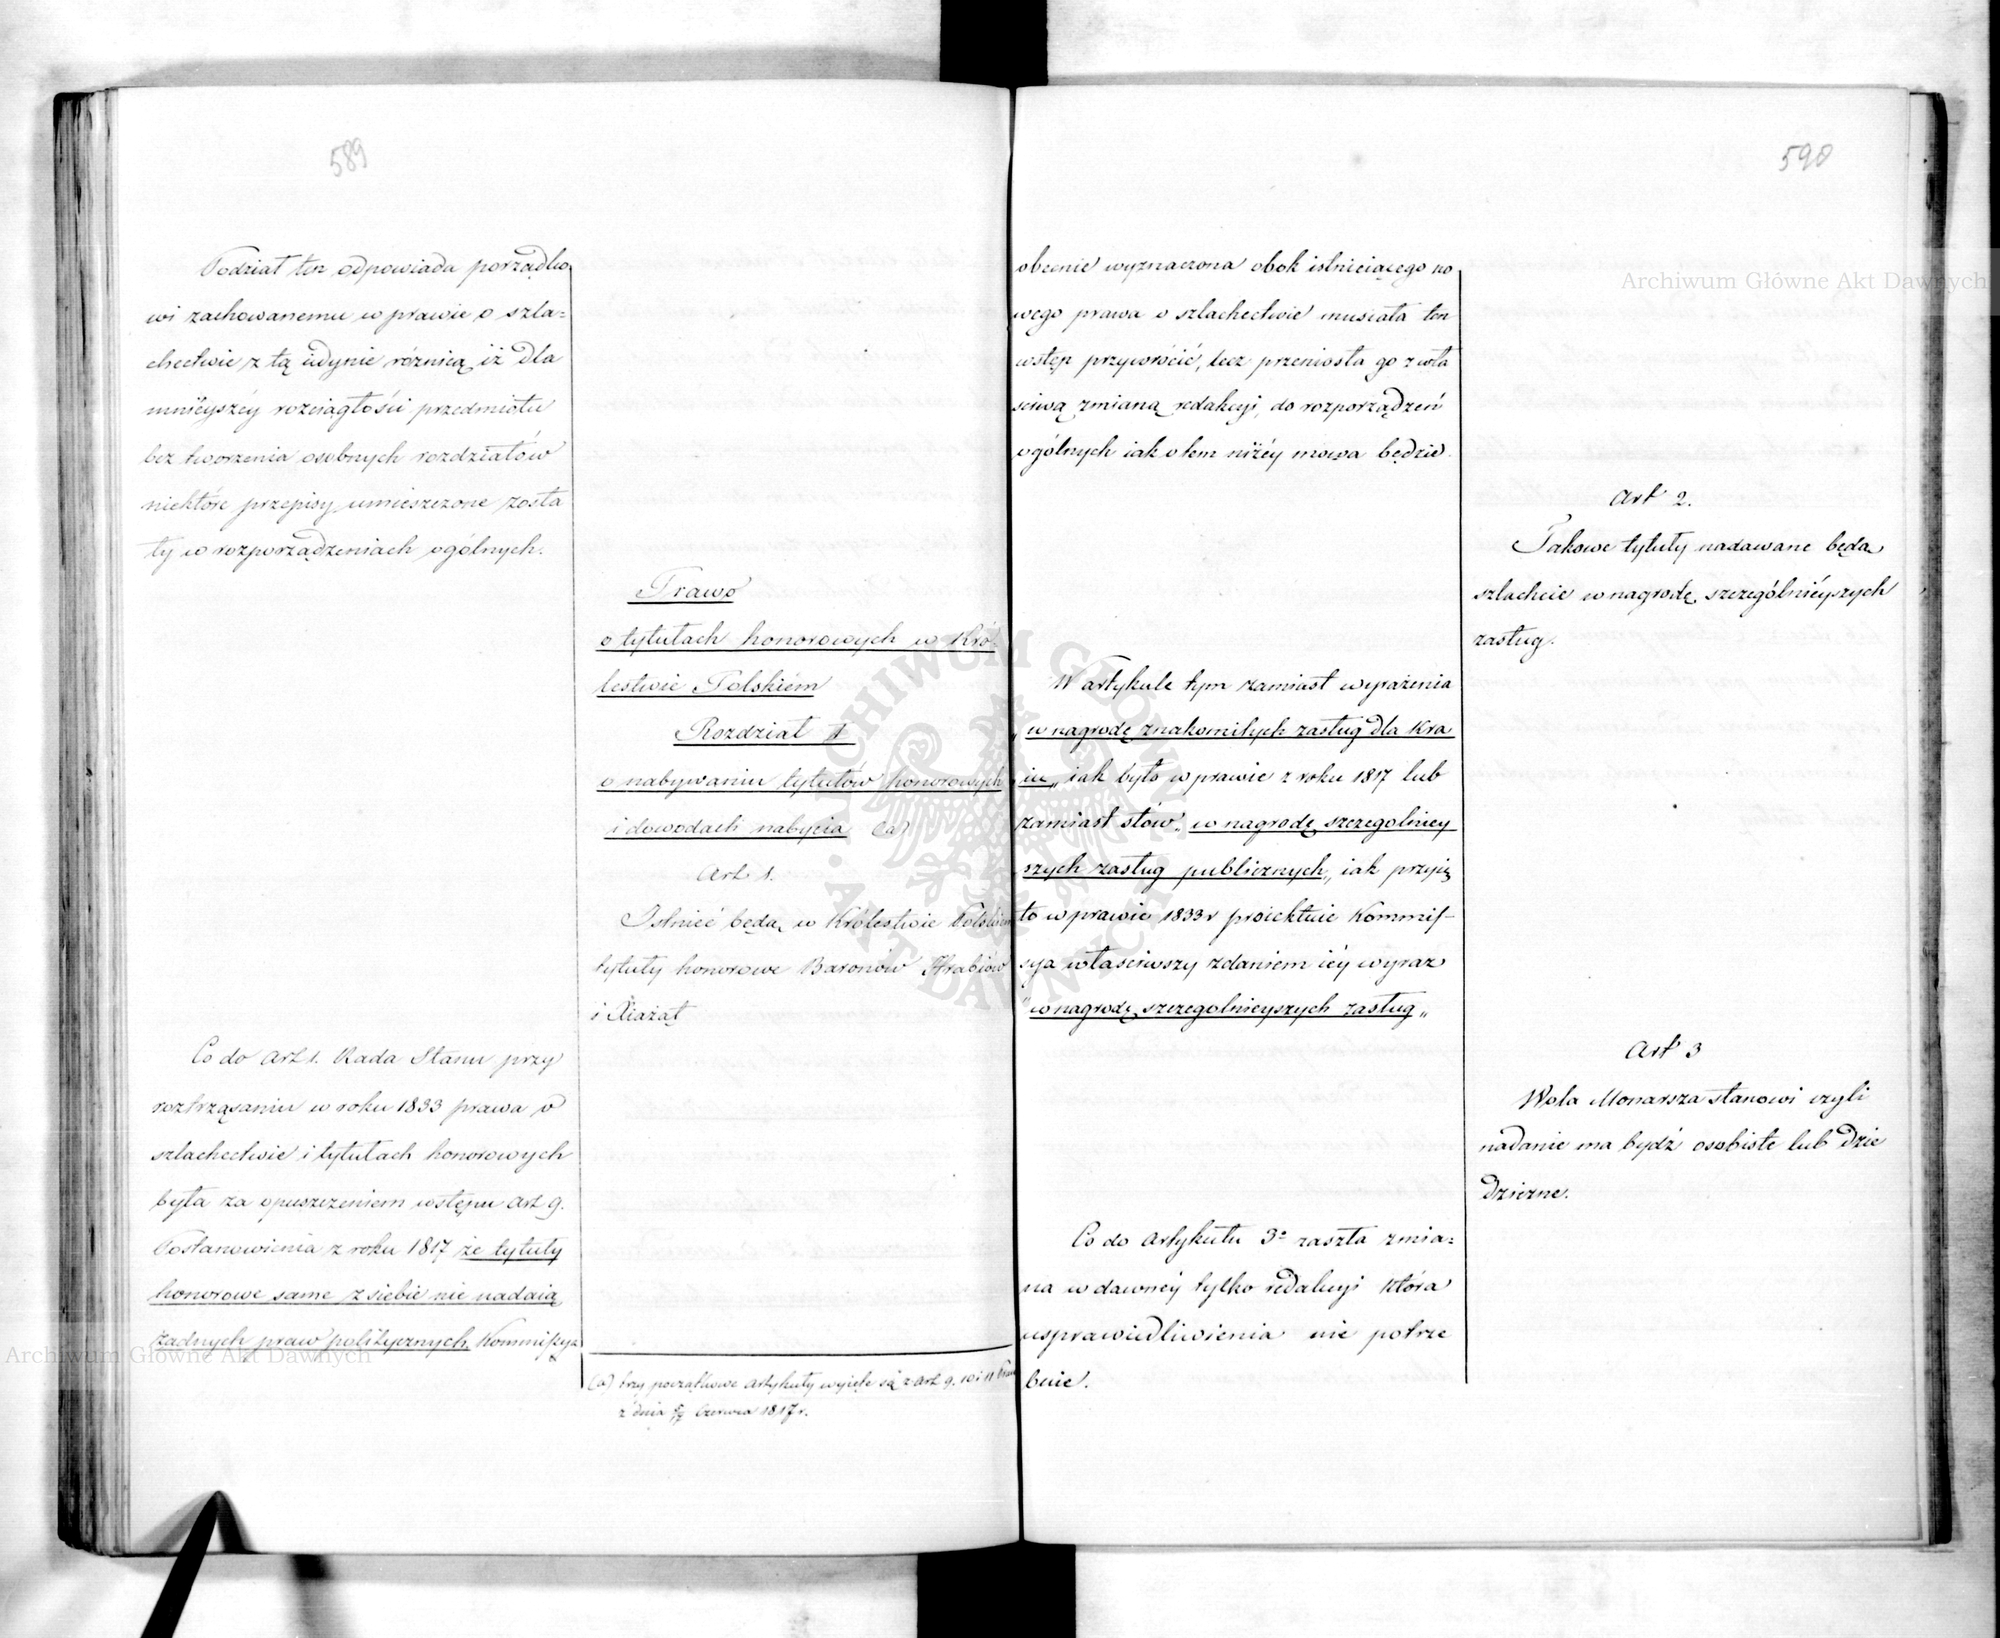 589
Podział ten odpowiada porządko
wi zachowanemu w prawie o szla=
chectwie z tą iedynie róznicą, iż dla
mnieyszéy rozciągłości przedmiotu
bez tworzenia osobnych rozdziałów
niektóre przepisy umieszczone zosta
ły w rozporządzeniach ogólnych.
Co do Art 1. Rada Stanu przy
roztrząsaniu w roku 1833 prawa o
szlachectwie i tytułach honorowych
była za opuszczeniem wstępu Art 9.
Postanowienia z roku 1817 że tytuły
honorowe same z siebie nie nadaią
żadnych praw politycznych. Kommissya
Prawo
o tytułach honorowych w Kró-
lestwie Polskiém
Rozdział I
o nabywaniu tytułów honorowych
i dowodach nabycia (a)
Art 1.
Istnieć będą w Królestwie Polskiém
tytuły honorowe Baronów Hrabiów
i Xiażąt
(a) trzy początkowe Artykuły wyięte są z Art 9. 10 i 11
z dnia Czerwca 1817 r.
590
obecnie wyznaczona obok istnieiącego no
wego prawa o szlachectwie musiała ten
wstęp przywrócić, lecz przeniosła go z wła
sciwą zmianą redakcyi, do rozporządzeń
ogólnych iak o tem niżéy mowa będzie.
W artykule tym zamiast wyrażenia
„w nagrodę znakomitych zasług dla Kra
iu„ iak było w prawie z roku 1817 lub
zamiast słów„ w nagrodę szczegolniey
szych zasług publicznych„ iak przyię
to w prawie 1833 r proiektuie Kommis-
sya właściwszy zdaniem iéy wyraz
"w nagrodę szczegolnieyszych zasług„
Co do Artykułu 3o zaszła zmia=
na w dawnéy tylko redakcyi która
usprawiedliwienia nie potrze
buie.
Art 2.
Takowe tytuły nadawane będą
szlachcie w nagrodę szczególniéyszych
zasług.
Art 3
Wola Monarsza stanowi czyli
nadanie ma bydź osobiste lub dzie
dziczne.
Archiwum Główne Akt Dawnych
Archiwum Główne Akt Dawnych
ARCHIWUM GŁÓWNE AKT DAWNYCH